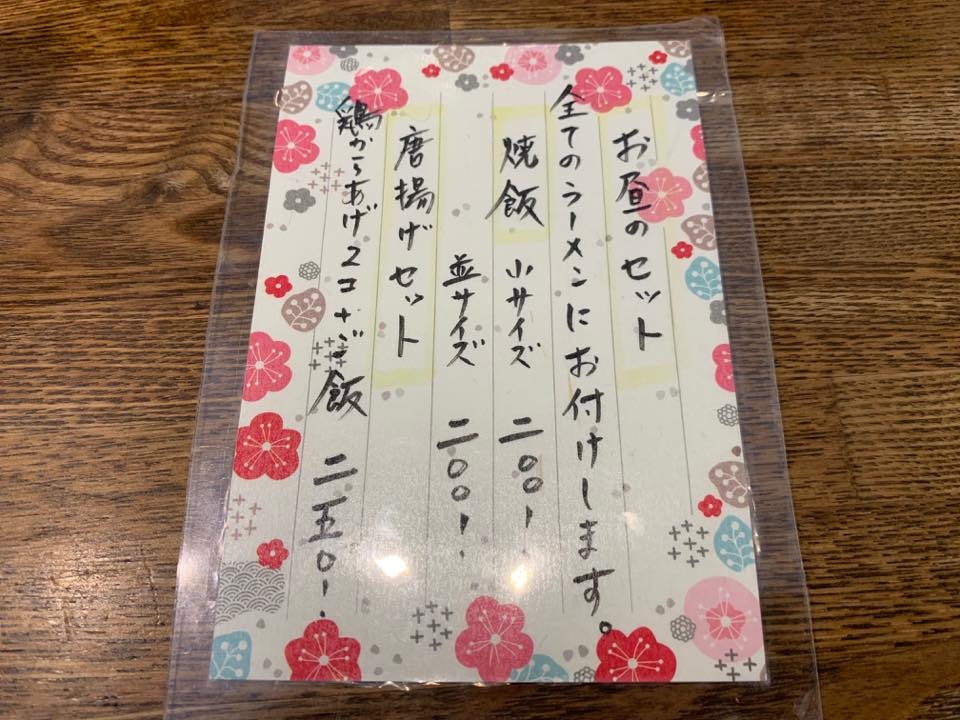 お昼のセット
全てのラーメンにお付けします。
焼飯 小サイズ 二〇〇ー.
並サイズ 二〇〇ー.
唐揚げセット
鶏からあげ2コ+ご飯 二五〇ー.